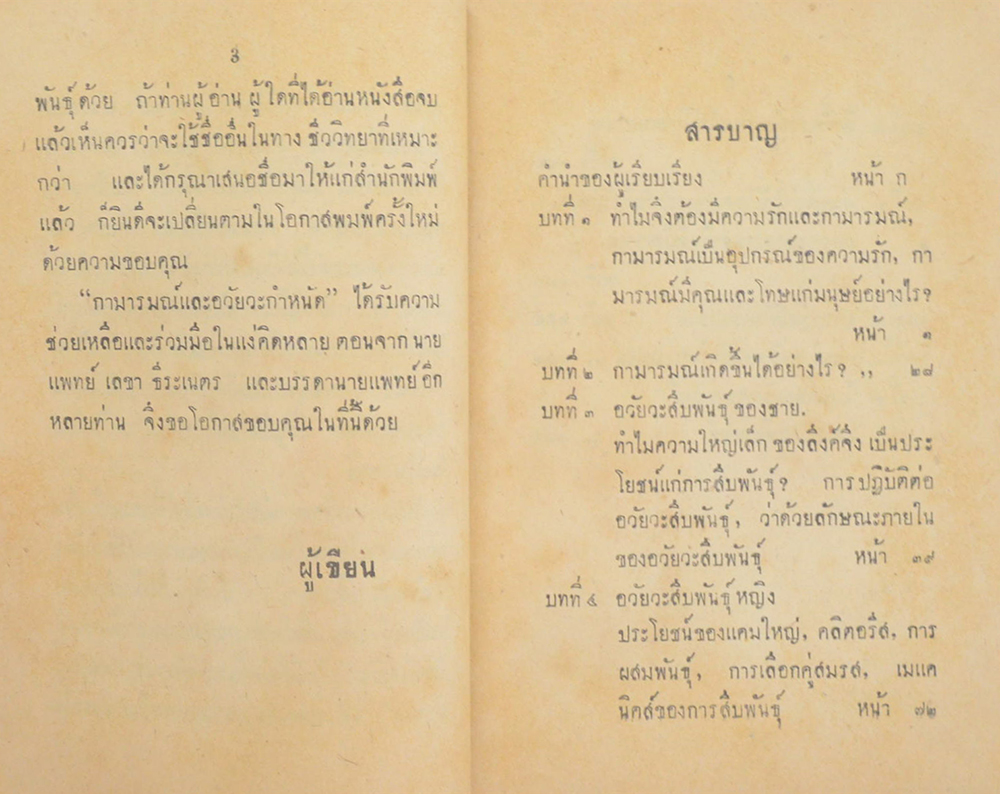 3
พันธุ์ด้วย ถ้าท่านผู้อ่าน ผู้ใดที่ได้อ่านหนังสือจบ
แล้วเห็นควรว่าจะใช้ชื่ออื่นในทาง ชีววิทยาที่เหมาะ
กว่า และได้กรุณาเสนอชื่อมาให้แก่สำนักพิมพ์
แล้ว ก็ยินดีจะเปลี่ยนตามในโอกาสพมพ์ครั้งใหม่
ด้วยความขอบคุณ
“กามารมณ์และอวัยวะกำหนัด” ได้รับความ
ช่วยเหลือและร่วมมือในแง่คิดหลาย ตอนจาก นาย
แพทย์ เลขา ธีระเนตร และบรรดานายแพทย์อีก
หลายท่าน จึงขอโอกาสขอบคุณในที่นี้ด้วย
ผู้เขียน
สารบาญ
คำนำของผู้เรียบเรียง หน้า ก
บทที่ ๑ ทำไมจึงต้องมีความรักและกามารมณ์,
กามารมณ์เป็นอุปกรณ์ของความรัก, กา
มารมณ์มีคุณและโทษแก่มนุษย์อย่างไร?
หน้า ๑
บทที่ ๒ กามารมณ์เกิดขึ้นได้อย่างไร? ,, ๒๘
บทที่ ๓ อวัยวะสืบพันธุ์ ของชาย.
ทำไมความใหญ่เล็ก ของลึงค์จึง เป็นประ
โยชน์แก่การสืบพันธุ์? การปฏิบัติต่อ
อวัยวะสืบพันธุ์, ว่าด้วยลักษณะภายใน
ของอวัยวะสืบพันธุ์ หน้า ๓๙
บทที่ ๔ อวัยวะสืบพันธุ์ หญิง
ประโยชน์ของแคมใหญ่, คลิตอรีส, การ
ผสมพันธุ์, การเลือกคู่สมรส, เมแค
นิคส์ของการสืบพันธุ์ หน้า ๗๒